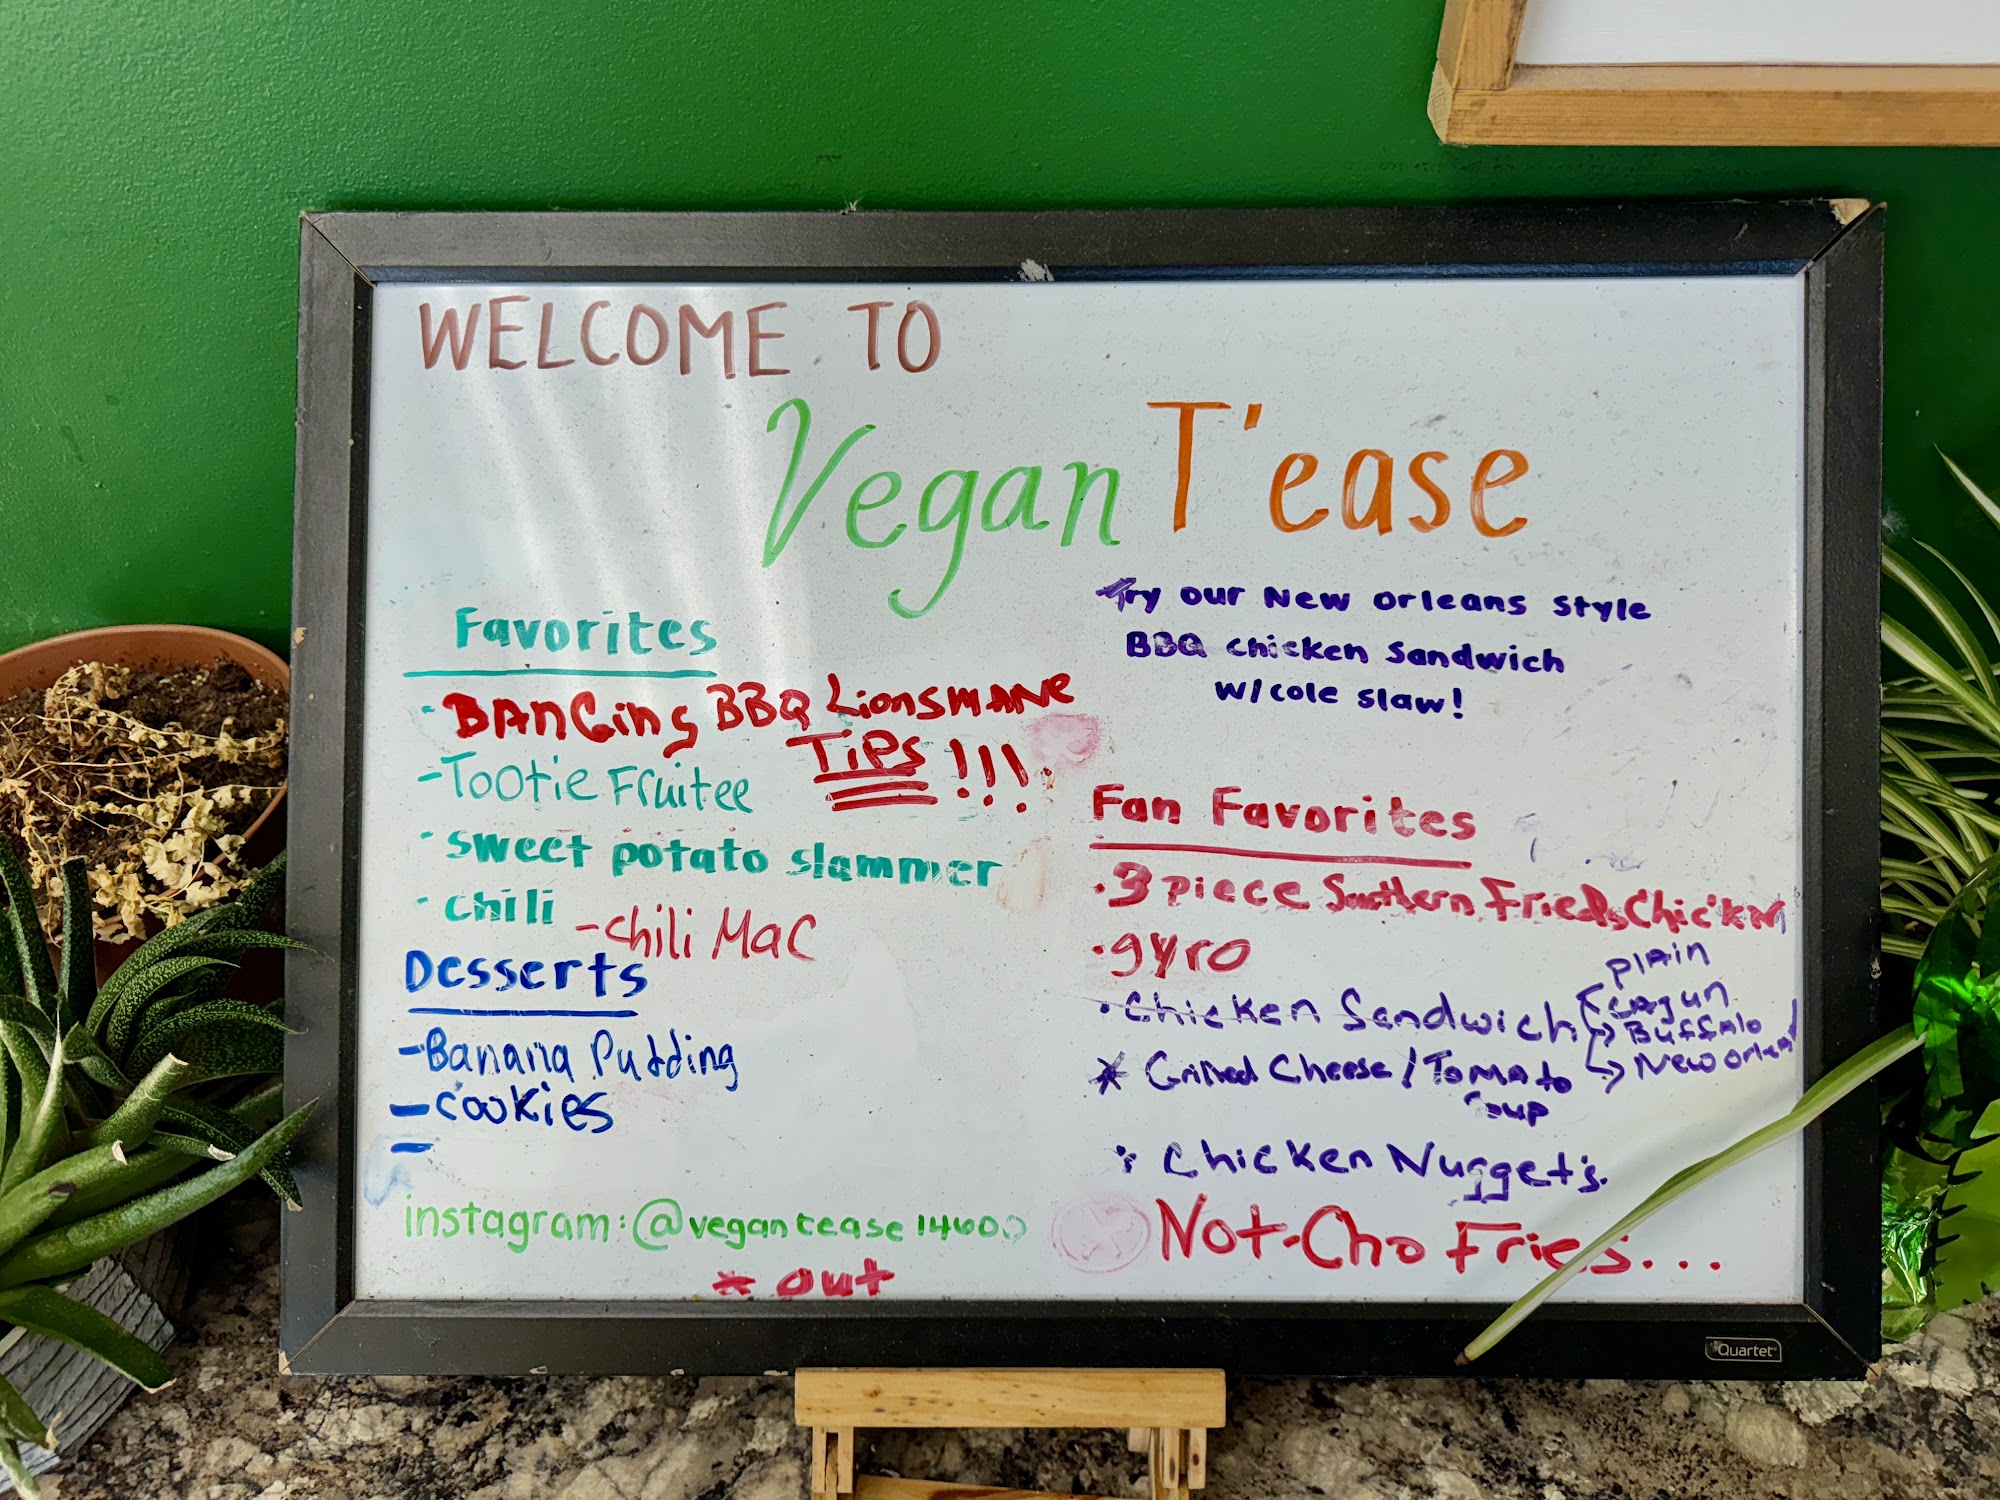 WELCOME TO
Vegan T'ease
Favorites
- BANGing BBQ Lionsmane
TIPS!!!
- Tootie Fruitee
- sweet potato slammer
- chili - chili Mac
Desserts
- Banana Pudding
- cookies
-
instagram: @vegantease14600
* out
Try our New Orleans Style
BBQ chicken Sandwich
w/cole slaw!
Fan Favorites
• 3 piece Southern Fried Chicken
• gyro
• Chicken Sandwich
plain
Cajun
→ Buffalo
→ New Orleans
* Grilled Cheese / Tomato
Soup
• Chicken Nugget's.
Not-Cho Fries...
Quartet